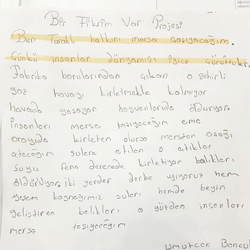 Bir Fikrim Var Projesi
Ben Taraklı halkını marsa taşıyacağım.
Çünkü insanlar dünyamızı iyice çürüttüler.
Fabrika borularından çıkan o zehirli
gaz havayı kirletmekle kalmıyor
havada yaşayan hayvanlarıda öldürüyor.
İnsanları marsa taşıyacağım ama
orayıda kirleten olursa marstan aşağı
atacağım sulara atılan o atıklar
suyu fena derecede kirletiyor balıkları
öldürüyor iki yerden darbe yiyoruz hem
yaşam kaynağımız suları hemde beyin
geliştiren balıkları o yüzden insanları
marsa taşıyacağım
Umutcan